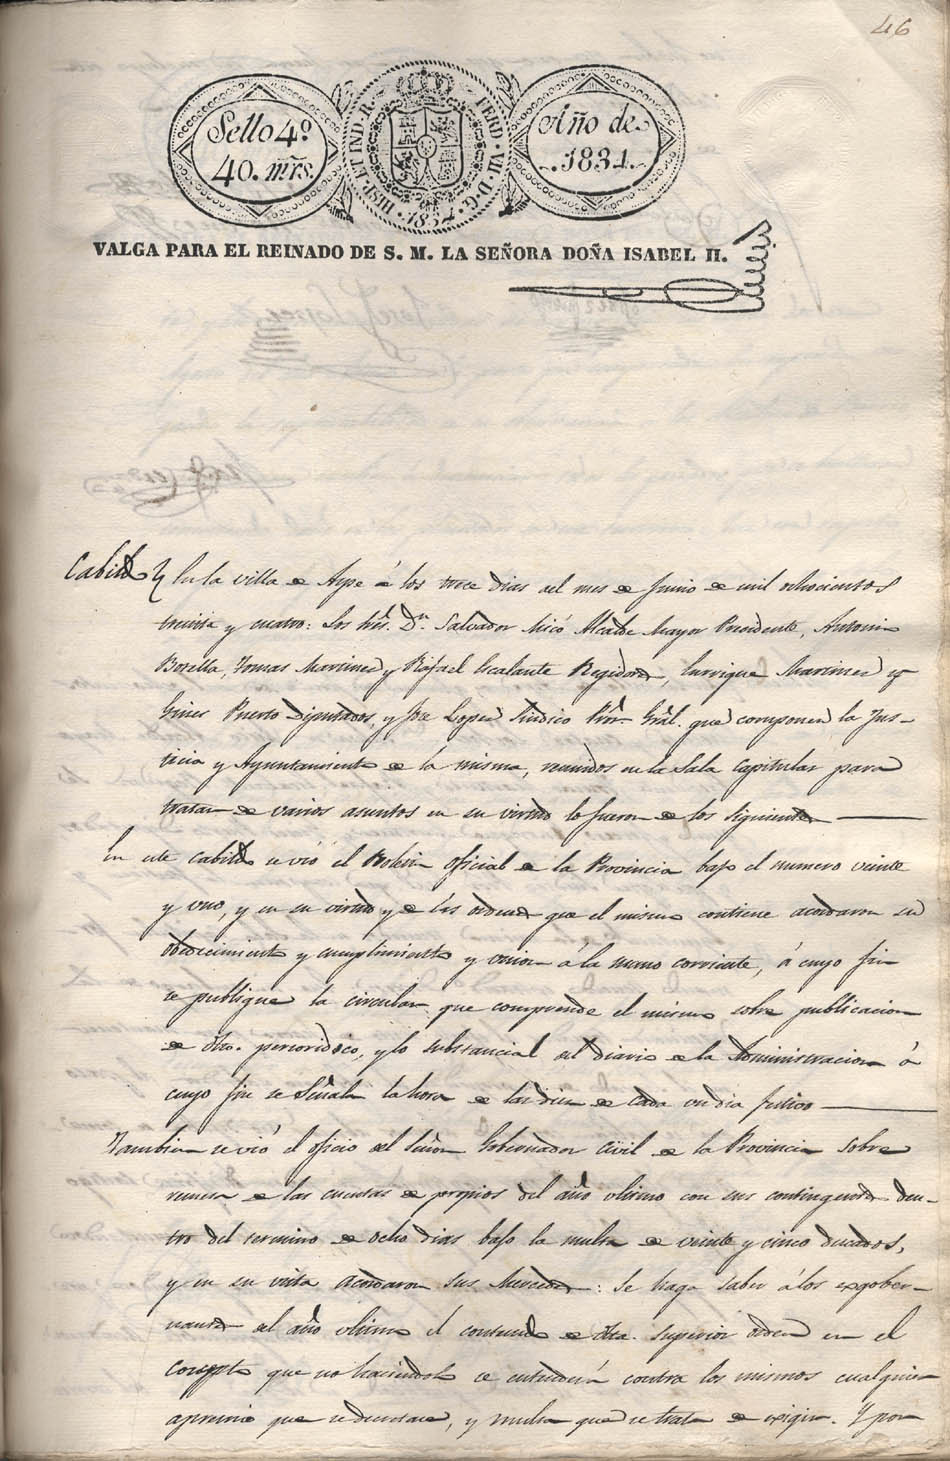 46
Sello 4º
40. mrs.
HISP. ET IND. R. FERD. VII. D. G. 1834.
Año de
1834.
VALGA PARA EL REINADO DE S. M. LA SEÑORA DOÑA ISABEL II.
Cabildo En la villa de Aspe á los once dias del mes de Junio de mil ochocientos
treinta y cuatro: Los Sres. Dn. Salvador Micó Alcalde Mayor Presidente, Antonio
Botella, Tomas Martinez y Rafael Escalante Regidores, Enrique Martinez y
Gines Puerto Diputados, y Jose Lopez Sindico Pror. Gral. que componen la Jus-
ticia y Ayuntamiento de la misma, reunidos en la Sala Capitular para
tratar de varios asuntos en su virtud lo fueron de los siguientes
En este Cabildo se vió el Boletin oficial de la Provincia bajo el numero veinte
y uno, y en su virtud y de las ordenes que el mismo contiene acordaron su
obedecimiento y cumplimiento y union á la mano corriente, á cuyo fin
se publique la circular que comprende el mismo sobre publicacion
de dho. periodico, y lo substancial del diario de la Administracion á
cuyo fin se Señala la hora de las diez de cada un dia festivo
Tambien se vió el oficio del Señor Gobernador Civil de la Provincia sobre
remesa de las cuentas de propios del año ultimo con sus contingentes den-
tro del termino de ocho dias bajo la multa de veinte y cinco ducados,
y en su vista acordaron sus Mercedes: Se haga saber á los exgober-
nantes del año ultimo el contenido de dha. superior orden en el
concepto que no haciendolo se entenderá contra los mismos cualquier
apremio que se despache, y multa que se trate de exigir. Y por